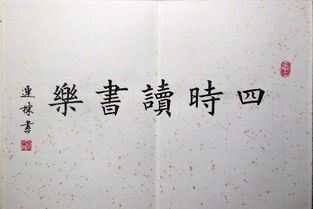 四時讀書樂
連城書